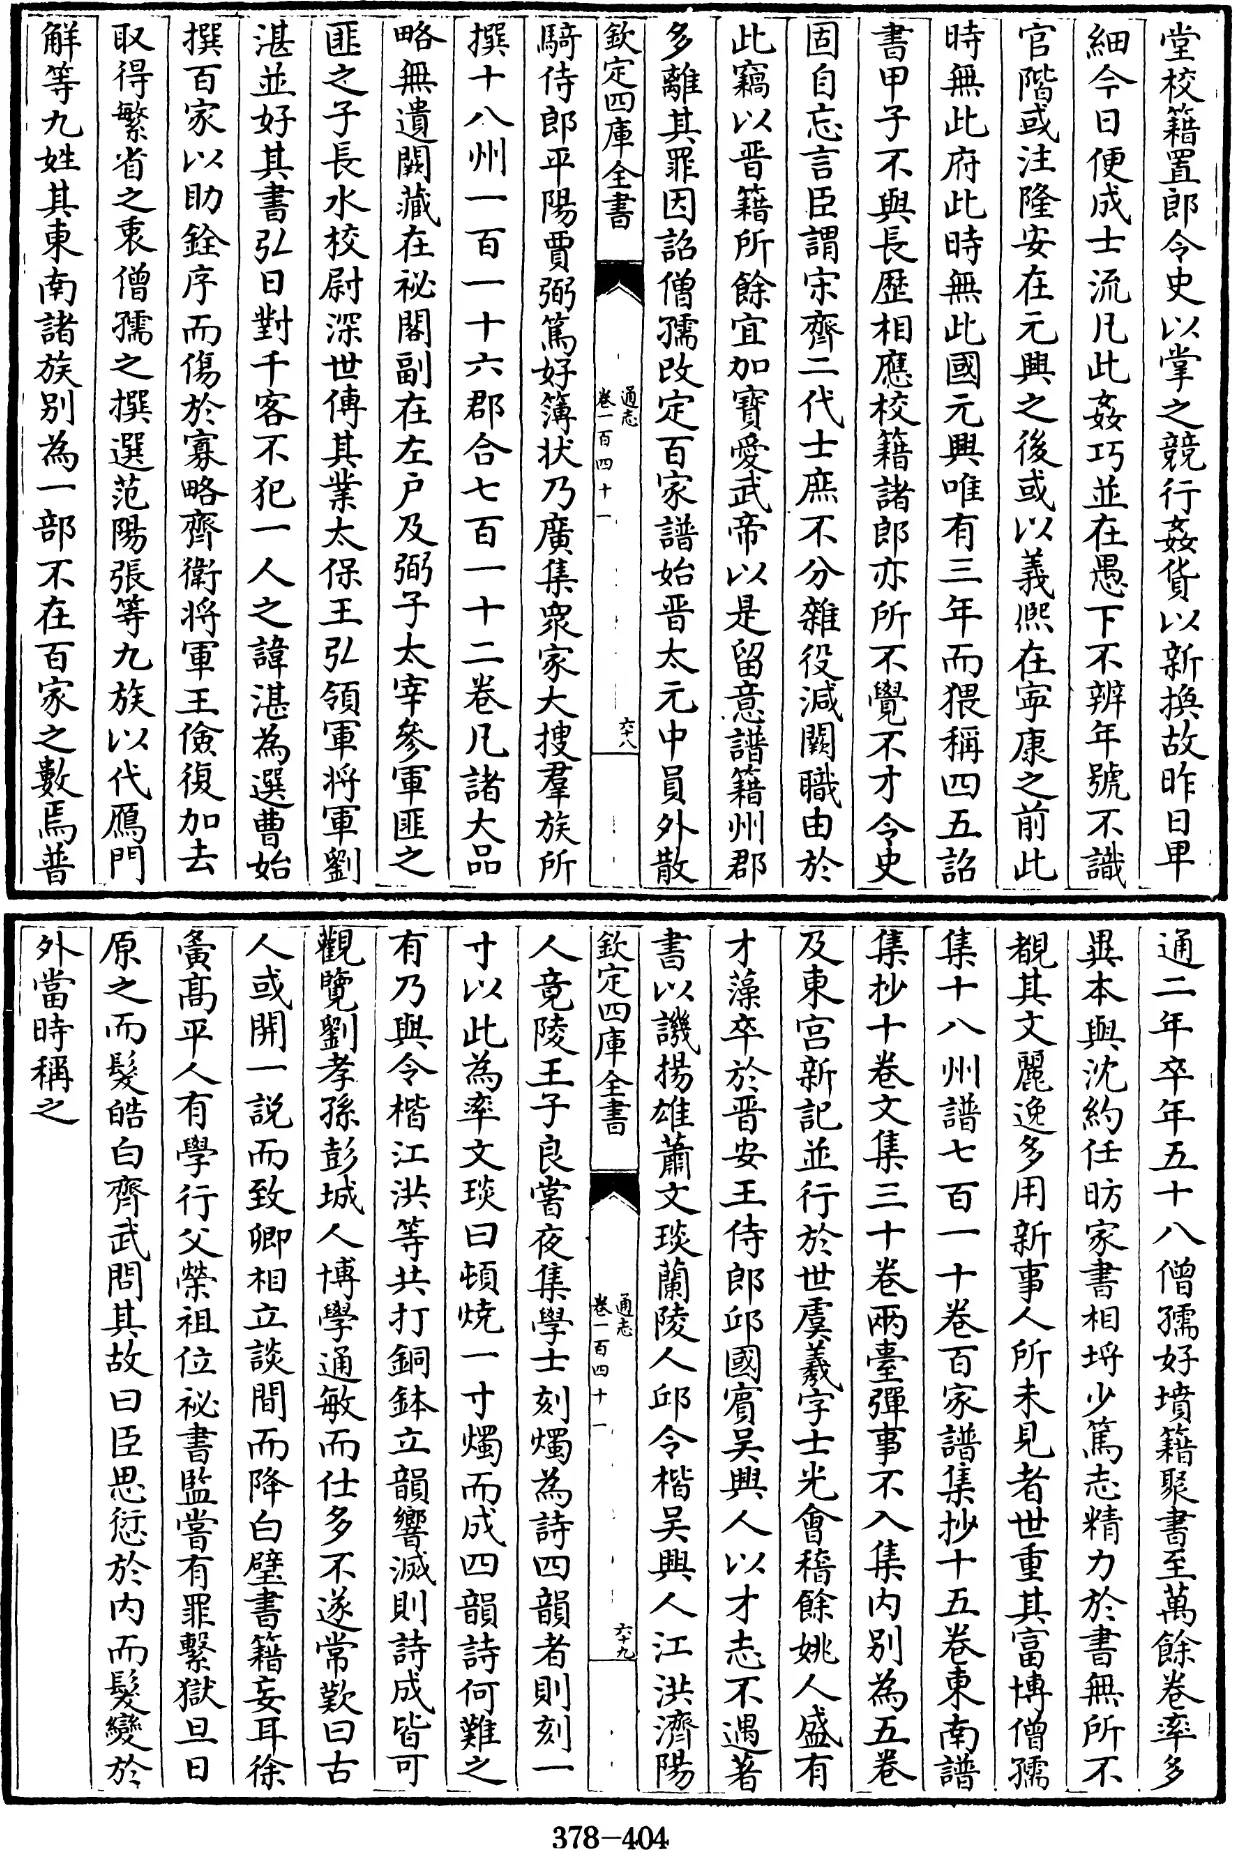 堂校籍置郎令史以掌之競行姦貨以新換故昨日卑
細今日便成士流凡此姦巧並在愚下不辨年號不識
官階或注隆安在元興之後或以義熙在寧康之前此
時無此府此時無此國元興唯有三年而猥稱四五詔
書甲子不與長歷相應校籍諸郎亦所不覺不才令史
固自忘言臣謂宋齊二代士庶不分雜役減闕職由於
此竊以晉籍所餘宜加寶愛武帝以是留意譜籍州郡
多離其罪因詔僧孺改定百家譜始晉太元中員外散
欽定四庫全書
通志
卷一百四十一
六十八
騎侍郎平陽賈弼篤好簿狀乃廣集衆家大搜羣族所
撰十八州一百一十六郡合七百一十二卷凡諸大品
略無遺闕藏在祕閣副在左户及弼子太宰參軍匪之
匪之子長水校尉深世傳其業太保王弘領軍将軍劉
湛並好其書弘日對千客不犯一人之諱湛為選曹始
撰百家以助銓序而傷於寡略齊衛将軍王儉復加去
取得繁省之衷僧孺之撰選范陽張等九族以代鴈門
解等九姓其東南諸族别為一部不在百家之數焉普
通二年卒年五十八僧孺好墳籍聚書至萬餘卷率多
異本與沈約任昉家書相埒少篤志精力於書無所不
覩其文麗逸多用新事人所未見者世重其富博僧孺
集十八州譜七百一十卷百家譜集抄十五卷東南譜
集抄十卷文集三十卷兩臺彈事不入集内别為五卷
及東宫新記並行於世虞羲字士光會稽餘姚人盛有
才藻卒於晉安王侍郎邱國賓吴興人以才志不遇著
書以譏揚雄蕭文琰蘭陵人邱令楷吴興人江洪濟陽
欽定四庫全書
通志
卷一百四十一
六十九
人竟陵王子良嘗夜集學士刻燭為詩四韻者則刻一
寸以此為率文琰曰頓燒一寸燭而成四韻詩何難之
有乃與令楷江洪等共打銅鉢立韻響滅則詩成皆可
觀覽劉孝孫彭城人博學通敏而仕多不遂常歎曰古
人或開一説而致卿相立談間而降白璧書籍妄耳徐
夤高平人有學行父榮祖位祕書監嘗有罪繫獄旦日
原之而髮皓白齊武問其故曰臣思愆於内而髮變於
外當時稱之
378-404